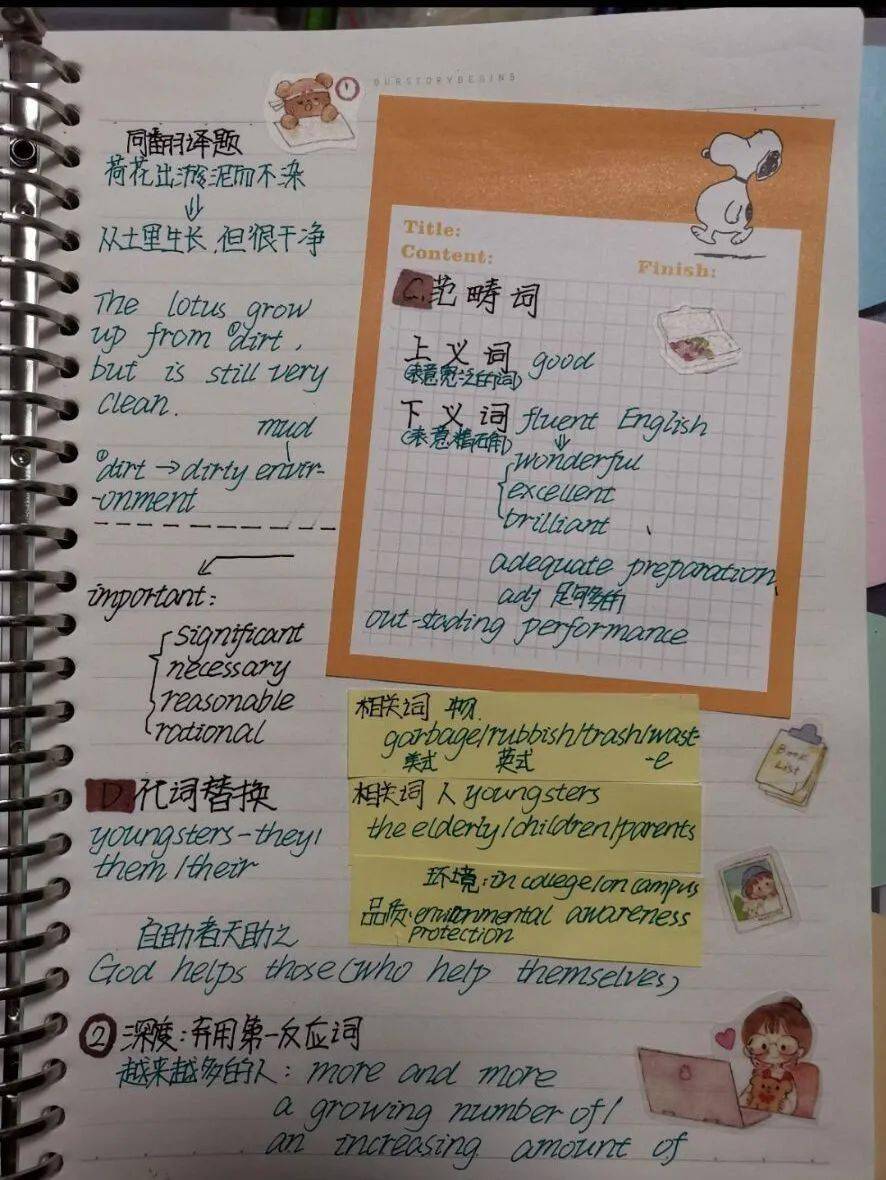 OURSTORYBEGINS
同翻译题
荷花出淤泥而不染
⇓
从土里生长,但很干净
The lotus grow
up from ①dirt,
but is still very
clean.
mud
①dirt → dirty envir-
-onment
important:
significant
necessary
reasonable
rational
Title:
Content:
Finish:
C.范畴词
上义词 good
(表意宽泛的词)
下义词 fluent English
(表意精确)
wonderful
excellent
brilliant
adequate preparation
adj 足够的
out-stading performance
相关词 物.
garbage/rubbish/trash/wast-
美式 英式 -e
相关词 人 youngsters
the elderly/children/parents
环境: in college/on campus
品质: environmental awareness
protection
Book
List
D.代词替换
youngsters-they/
them/their
自助者天助之
God helps those (who help themselves)
② 深度:弃用第一反应词
越来越多的人: more and more
a growing number of/
an increasing amount of